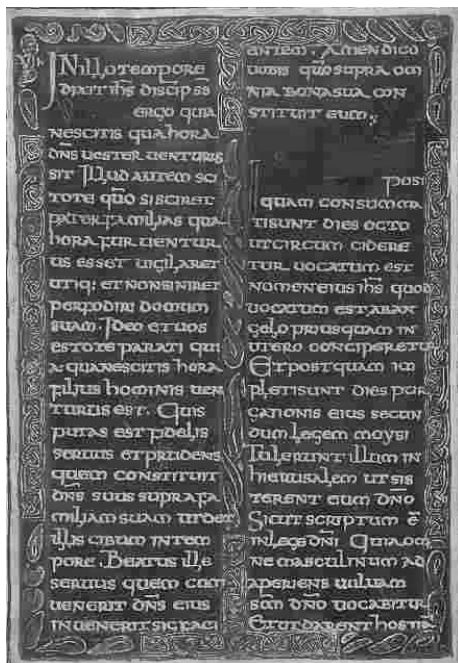 IN illo tempore
dixit ihs discip ss
ergo quia
nescitis qua hora
dns uester uenturus
sit Illud autem sci
tote quo si sciret
pater familias qua
hora fur uentur
us esset uigilaret
utiq: et non siniret
perfodiri domum
suam. Ideo et uos
estote parati qui
a qua nescitis hora
filius hominis uen
turus est. Quis
putas est fidelis
seruus et prudens
quem constituit
dns suus supra fa
miliam suam ut det
illis cibum in tem
pore. Beatus ille
seruus quem cum
uenerit dns eius
inuenerit sic faci
entem. Amen dico
uobis quo supra om
nia bona sua con
stituit eum;
Post
quam consumma
ti sunt dies octo
ut circum cidere
tur uocatum est
nomen eius ihs quod
uocatum est ab an
gelo prius quam in
utero conciperetur
Et post quam im
pleti sunt dies pur
cationis eius secun
dum legem moysi
Tulerunt illum in
hierusalem ut sis
terent eum dno
Sicut scriptum ē
in lege dni Quia om
ne masculinum ad
aperiens uuluam
scm dno uocabitur
Et ut darent hostia